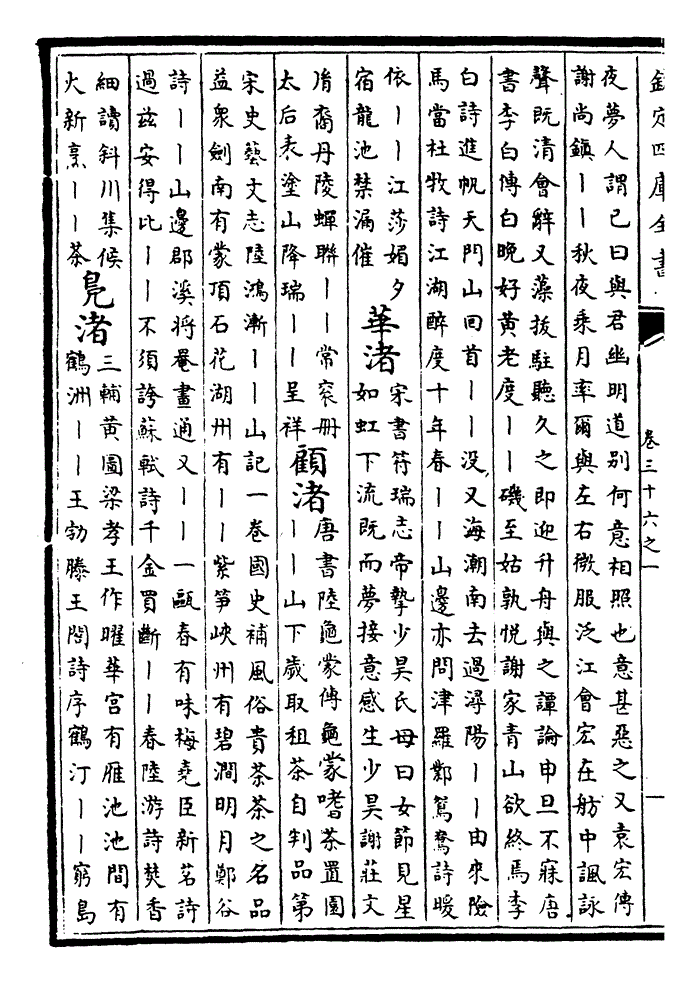 欽定四庫全書
卷三十六之一
一
夜夢人謂己曰與君幽明道别何意相照也意甚惡之又袁宏傳
謝尚鎮丨丨秋夜乘月率爾與左右微服泛江會宏在舫中諷詠
聲既清會辭又藻拔駐聽久之即迎升舟與之譚論申旦不寐唐
書李白傳白晚好黄老度丨丨磯至姑孰悦謝家青山欲終焉李
白詩進帆天門山回首丨丨没又海潮南去過潯陽丨丨由來險
馬當杜牧詩江湖醉度十年春丨丨山邊亦問津羅鄴鴛鴦詩暖
依丨丨江莎媚夕
宿龍池禁漏催
華渚
宋書符瑞志帝摯少昊氏母曰女節見星
如虹下流既而夢接意感生少昊謝莊文
脩裔丹陵蟬聯丨丨常衮册
太后表塗山降瑞丨丨呈祥
顧渚
唐書陸龜蒙傳龜蒙嗜茶置園
丨丨山下歲取租茶自判品第
宋史藝文志陸鴻漸丨丨山記一卷國史補風俗貴茶茶之名品
益衆劍南有蒙頂石花湖州有丨丨紫笋峽州有碧澗明月鄭谷
詩丨丨山邊郡溪將罨畫通又丨丨一甌春有味梅堯臣新茗詩
過兹安得比丨丨不須誇蘇軾詩千金買斷丨丨春陸游詩焚香
細讀斜川集候
火新烹丨丨茶
鳬渚
三輔黄圖梁孝王作曜華宫有雁池池間有
鶴洲丨丨王勃滕王閣詩序鶴汀丨丨窮島